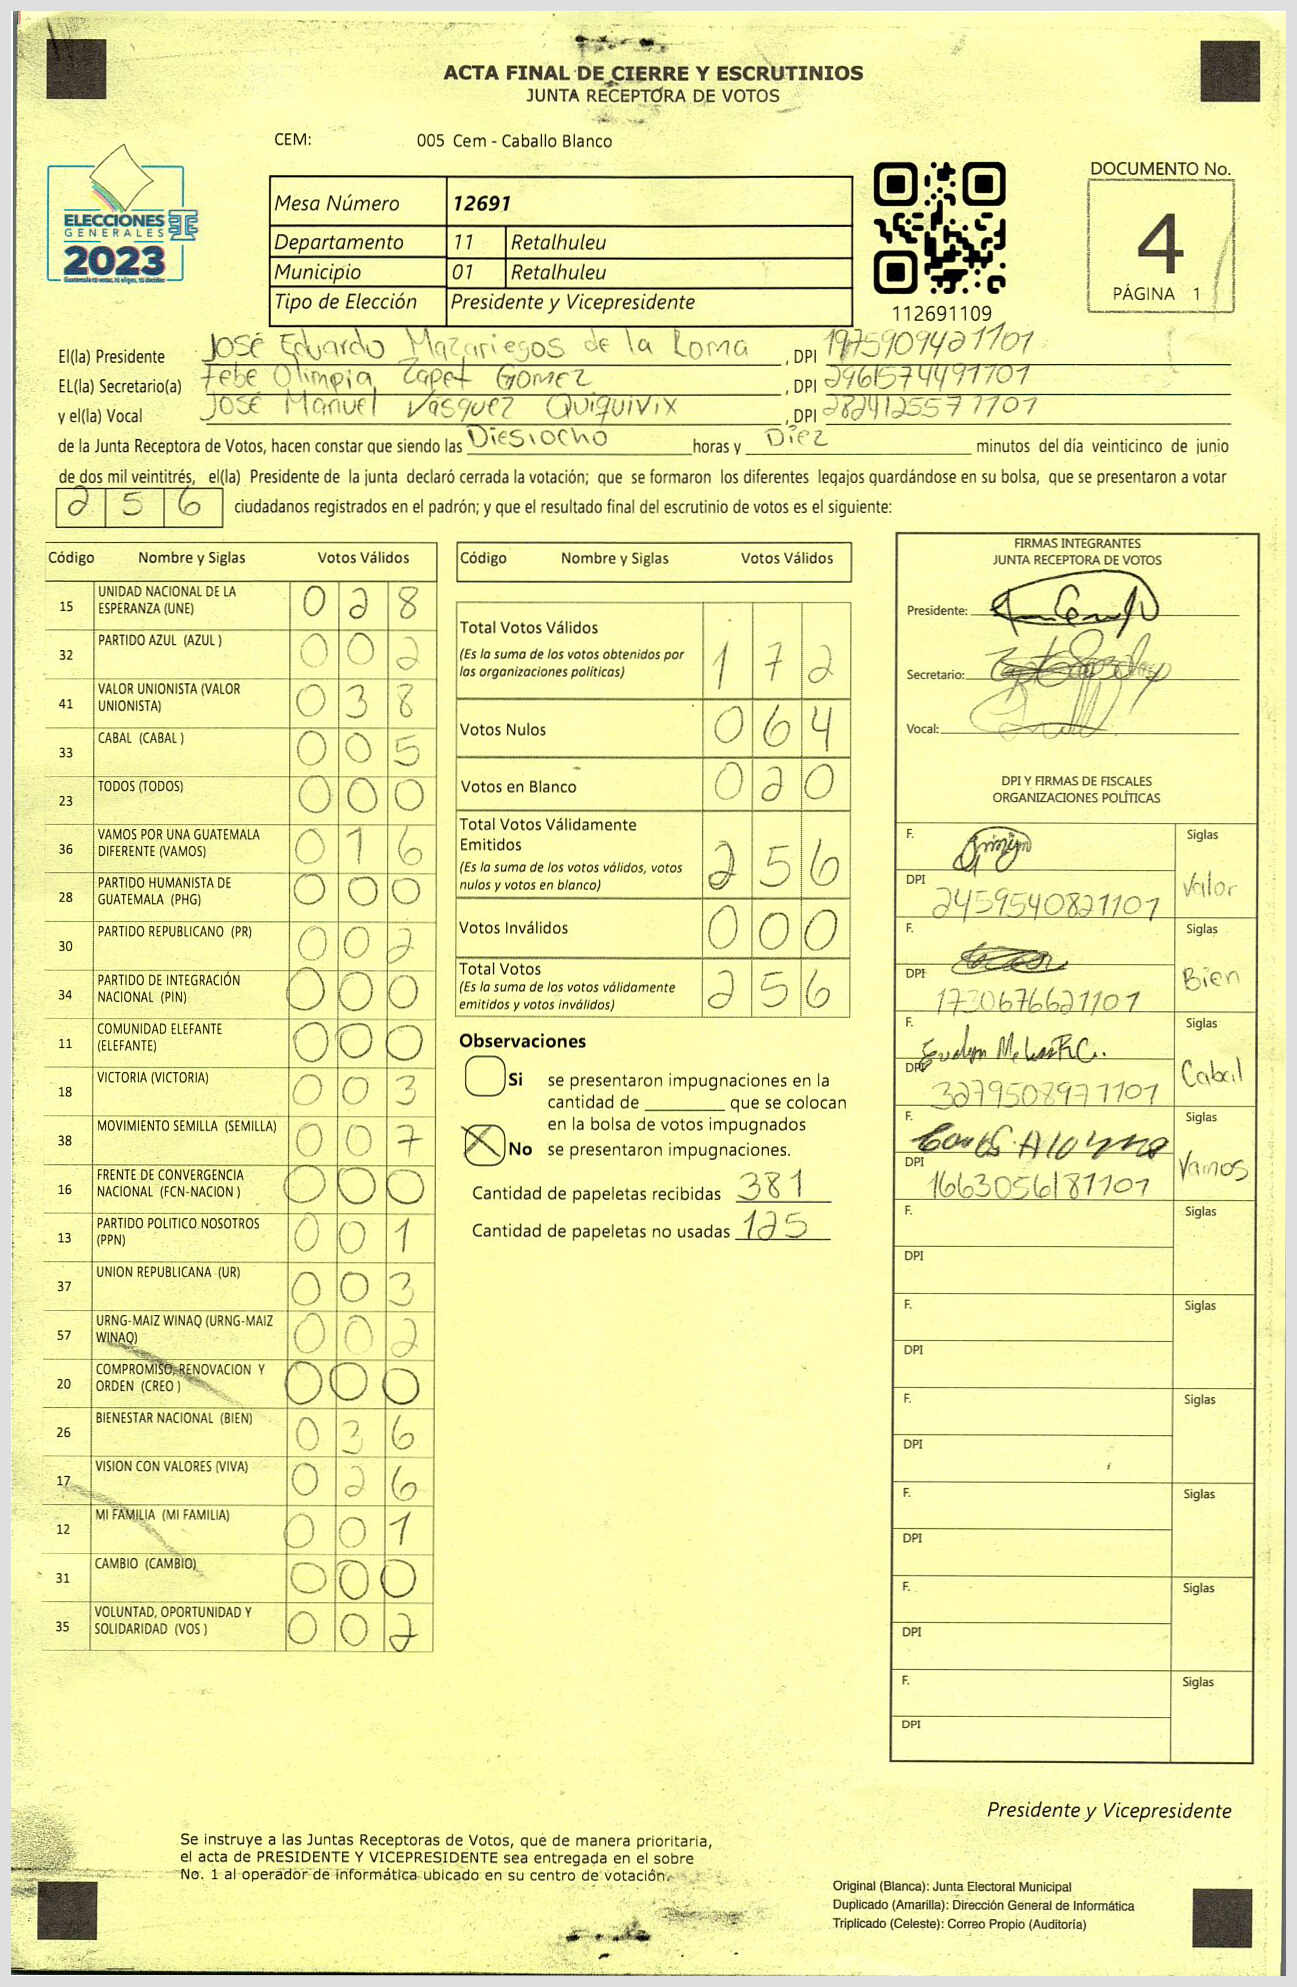 ACTA FINAL DE CIERRE Y ESCRUTINIOS
JUNTA RECEPTORA DE VOTOS
CEM: 005 Cem - Caballo Blanco
ELECCIONES
GENERALES
2023
Mesa Número 12691
Departamento 11 Retalhuleu
Municipio 01 Retalhuleu
Tipo de Elección Presidente y Vicepresidente
112691109
DOCUMENTO No.
4
PÁGINA 1
El(la) Presidente José Eduardo Mazariegos de la Roma, DPI 1975909421101
EL(la) Secretario(a) Febe Olimpia Zapet Gomez, DPI 2961574491101
y el(la) Vocal José Manuel Vásquez Quiquivix, DPI 2824125571101
de la Junta Receptora de Votos, hacen constar que siendo las Diesiocho horas y Diez minutos del día veinticinco de junio
de dos mil veintitrés, el(la) Presidente de la junta declaró cerrada la votación; que se formaron los diferentes legajos guardándose en su bolsa, que se presentaron a votar
256 ciudadanos registrados en el padrón; y que el resultado final del escrutinio de votos es el siguiente:
Código Nombre y Siglas Votos Válidos
15 UNIDAD NACIONAL DE LA ESPERANZA (UNE) 028
32 PARTIDO AZUL (AZUL ) 002
41 VALOR UNIONISTA (VALOR UNIONISTA) 038
33 CABAL (CABAL ) 005
23 TODOS (TODOS) 000
36 VAMOS POR UNA GUATEMALA DIFERENTE (VAMOS) 016
28 PARTIDO HUMANISTA DE GUATEMALA (PHG) 000
30 PARTIDO REPUBLICANO (PR) 002
34 PARTIDO DE INTEGRACIÓN NACIONAL (PIN) 000
11 COMUNIDAD ELEFANTE (ELEFANTE) 000
18 VICTORIA (VICTORIA) 003
38 MOVIMIENTO SEMILLA (SEMILLA) 007
16 FRENTE DE CONVERGENCIA NACIONAL (FCN-NACION ) 000
13 PARTIDO POLITICO NOSOTROS (PPN) 001
37 UNION REPUBLICANA (UR) 003
57 URNG-MAIZ WINAQ (URNG-MAIZ WINAQ) 002
20 COMPROMISO, RENOVACION Y ORDEN (CREO ) 000
26 BIENESTAR NACIONAL (BIEN) 036
17 VISION CON VALORES (VIVA) 026
12 MI FAMILIA (MI FAMILIA) 001
31 CAMBIO (CAMBIO) 000
35 VOLUNTAD, OPORTUNIDAD Y SOLIDARIDAD (VOS ) 002
Código Nombre y Siglas Votos Válidos
Total Votos Válidos 172
(Es la suma de los votos obtenidos por
las organizaciones políticas)
Votos Nulos 064
Votos en Blanco 020
Total Votos Válidamente
Emitidos 256
(Es la suma de los votos válidos, votos
nulos y votos en blanco)
Votos Inválidos 000
Total Votos 256
(Es la suma de los votos válidamente
emitidos y votos inválidos)
Observaciones
Si se presentaron impugnaciones en la
cantidad de ________ que se colocan
en la bolsa de votos impugnados
X No se presentaron impugnaciones.
Cantidad de papeletas recibidas 381
Cantidad de papeletas no usadas 125
FIRMAS INTEGRANTES
JUNTA RECEPTORA DE VOTOS
Presidente:
Secretario:
Vocal:
DPI Y FIRMAS DE FISCALES
ORGANIZACIONES POLÍTICAS
F. Siglas
DPI 2459540821101 Valor
F. Siglas
DPI 1730676621101 Bien
F. Siglas
DPI 3279508971101 Cabal
F. Siglas
DPI 1663056181101 Vamos
F. Siglas
DPI
F. Siglas
DPI
F. Siglas
DPI
F. Siglas
DPI
F. Siglas
DPI
F. Siglas
DPI
Presidente y Vicepresidente
Se instruye a las Juntas Receptoras de Votos, que de manera prioritaria,
el acta de PRESIDENTE Y VICEPRESIDENTE sea entregada en el sobre
No. 1 al operador de informática ubicado en su centro de votación.
Original (Blanca): Junta Electoral Municipal
Duplicado (Amarilla): Dirección General de Informática
Triplicado (Celeste): Correo Propio (Auditoría)